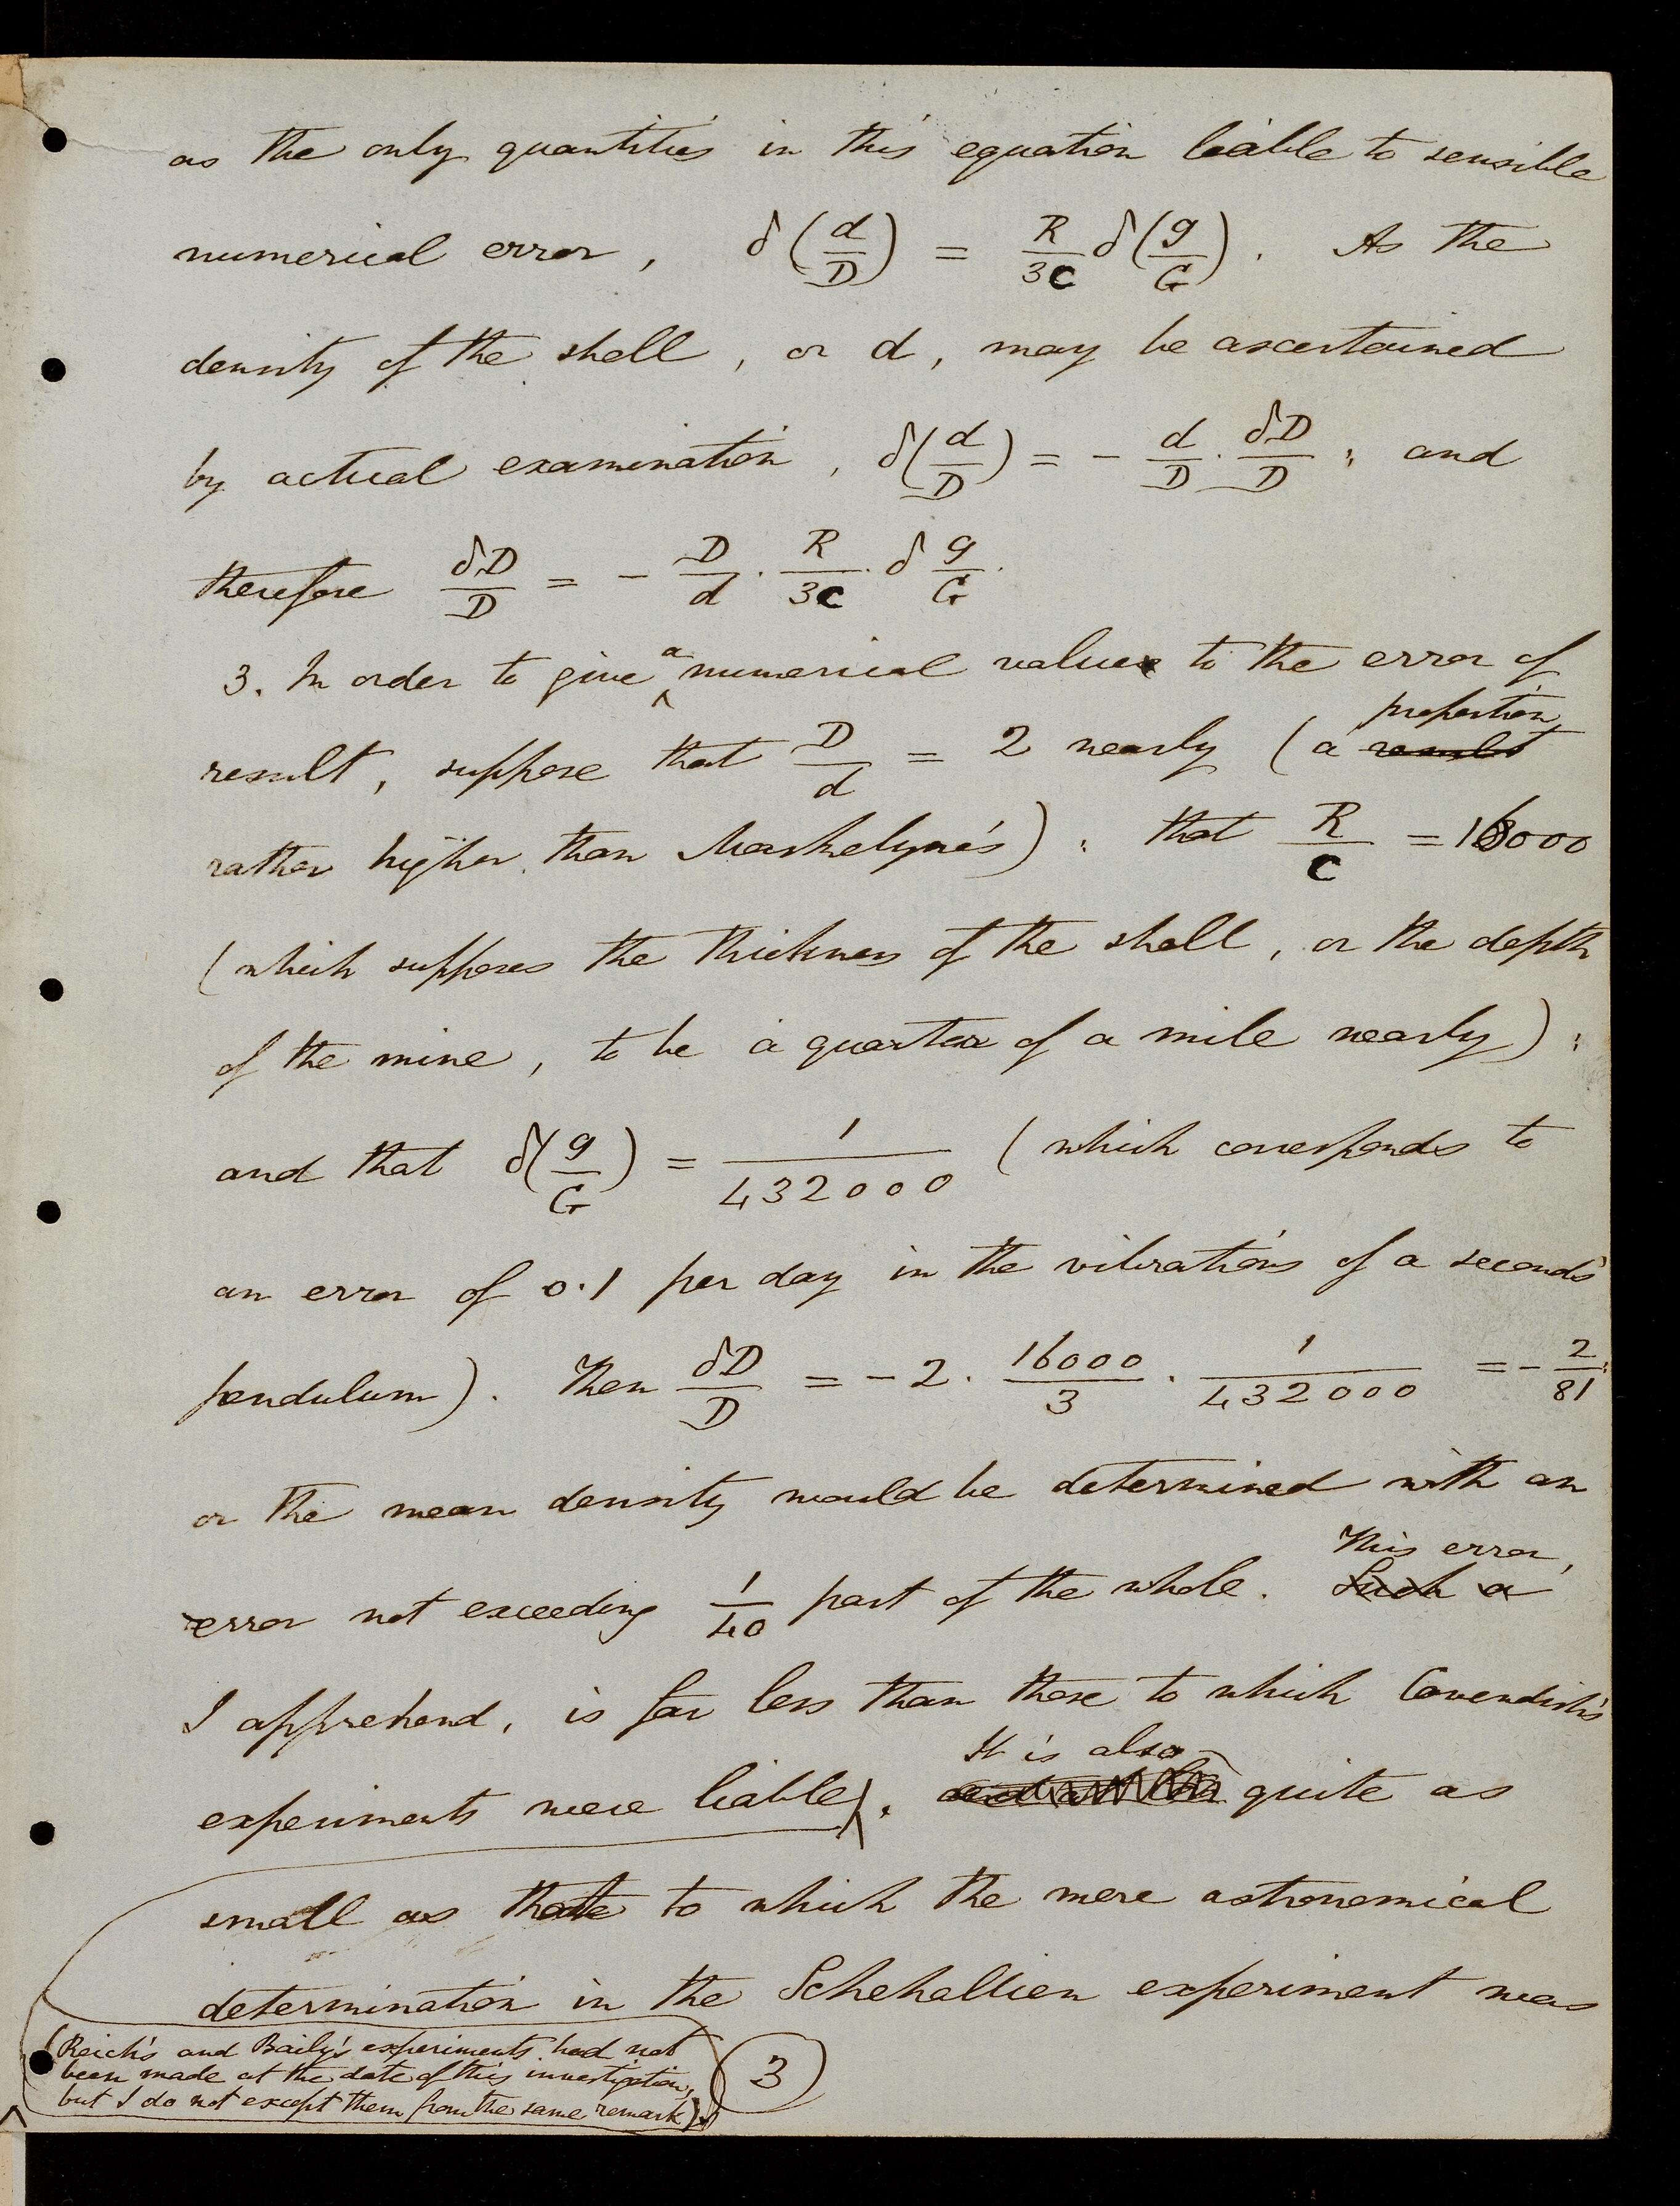 as the only quantities in this equation liable to sensible
numerical error, δ(d/D) = R/3C δ(g/G). As the
density of the shell, or d, may be ascertained
by actual examination, δ(d/D) = - d/D . δD/D ; and
therefore δD/D = - D/d . R/3C . δ g/G.
3. In order to give a numerical value to the error of
result, suppose that D/d = 2 nearly (a result proportion
rather higher than Maskelyne's) : that R/C = 16000
(which supposes the thickness of the shell, or the depth
of the mine, to be a quarter of a mile nearly) ;
and that δ(g/G) = 1/432000 (which corresponds to
an error of 0.1 per day in the vibrations of a seconds'
pendulum). Then δD/D = -2 . 16000/3 . 1/432000 = - 2/81 ;
or the mean density would be determined with an
error not exceeding 1/40 part of the whole. Such a This error,
I apprehend, is far less than those to which Cavendish's
experiments were liable. It is also quite as
small as that to which the mere astronomical
determination in the Schehallien experiment was
(Reich's and Baily's experiments had not
been made at the date of this investigation,
but I do not except them from the same remark)
3